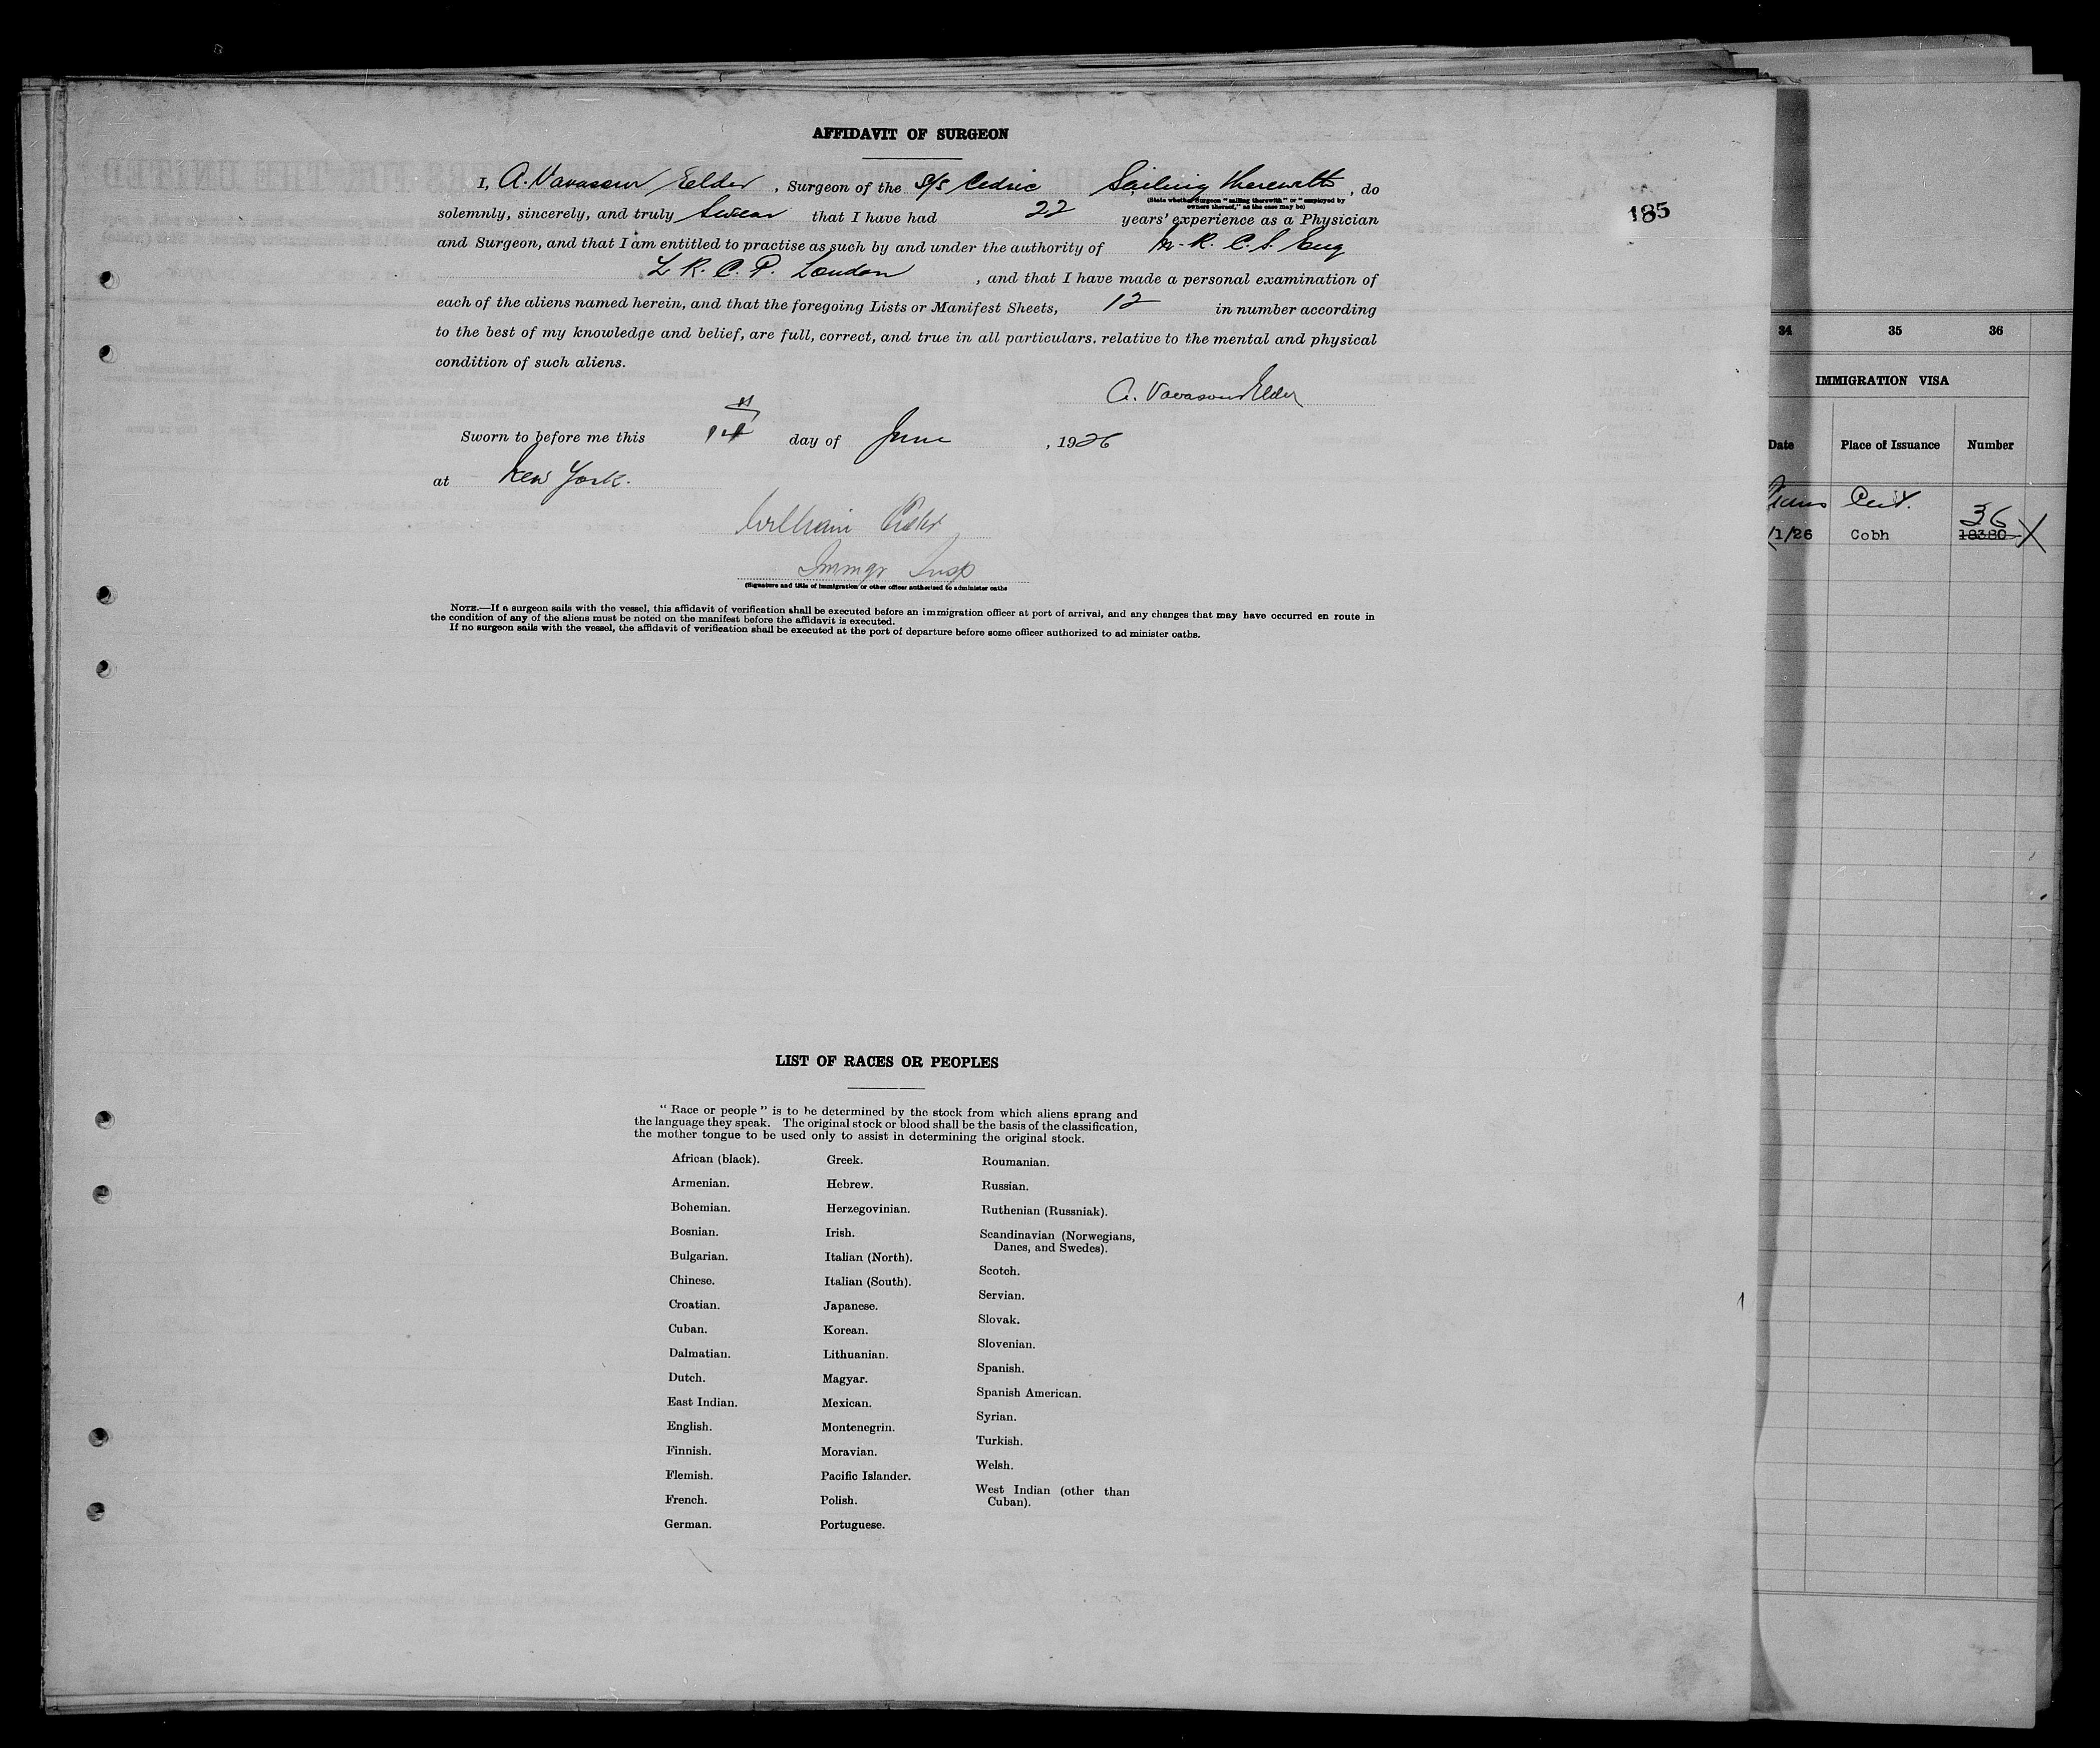 AFFIDAVIT OF SURGEON
I, A. Vavasour Elder, Surgeon of the S/S Cedric Sailing therewith, do
(State whether Surgeon "sailing therewith" or "employed by
owners thereof," as the case may be)
185
solemnly, sincerely, and truly Swear that I have had 22 years' experience as a Physician
and Surgeon, and that I am entitled to practise as such by and under the authority of M. R. C. S. Eng
L R. C. P. London, and that I have made a personal examination of
each of the aliens named herein, and that the foregoing Lists or Manifest Sheets, 12 in number according
to the best of my knowledge and belief, are full, correct, and true in all particulars. relative to the mental and physical
condition of such aliens.
A. Vavasour Elder
Sworn to before me this day of June, 1926
at New York.
William
Immgr Insp
(Signature and title of immigration or other officer authorised to administer oaths
NOTE.—If a surgeon sails with the vessel, this affidavit of verification shall be executed before an immigration officer at port of arrival, and any changes that may have occurred en route in
the condition of any of the aliens must be noted on the manifest before the affidavit is executed.
If no surgeon sails with the vessel, the affidavit of verification shall be executed at the port of departure before some officer authorized to ad minister oaths.
LIST OF RACES OR PEOPLES
"Race or people" is to be determined by the stock from which aliens sprang and
the language they speak. The original stock or blood shall be the basis of the classification,
the mother tongue to be used only to assist in determining the original stock.
African (black).
Armenian.
Bohemian.
Bosnian.
Bulgarian.
Chinese.
Croatian.
Cuban.
Dalmatian.
Dutch.
East Indian.
English.
Finnish.
Flemish.
French.
German.
Greek.
Hebrew.
Herzegovinian.
Irish.
Italian (North).
Italian (South).
Japanese.
Korean.
Lithuanian.
Magyar.
Mexican.
Montenegrin.
Moravian.
Pacific Islander.
Polish.
Portuguese.
Roumanian.
Russian.
Ruthenian (Russniak).
Scandinavian (Norwegians,
Danes, and Swedes).
Scotch.
Servian.
Slovak.
Slovenian.
Spanish.
Spanish American.
Syrian.
Turkish.
Welsh.
West Indian (other than
Cuban).
34 35 36
IMMIGRATION VISA
Date Place of Issuance Number
36
/1/26 Cobh 18380 X